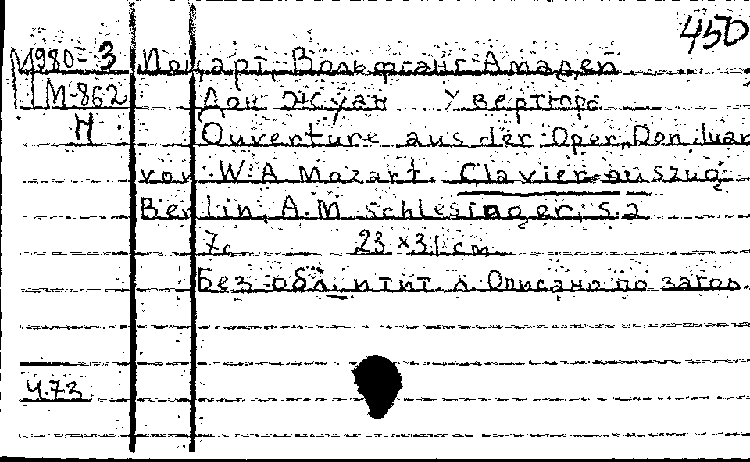 450
М980-3 Моцарт, Вольфганг Амадей
М-862 Дон Жуан Увертюра
Н Ouverture aus der Oper, Don Iuan
von W. A Mozart. Clavier-auszug
Berlin, A. M Schlesinger, s. a
7с 23 × 31 cm
Без обл. и тит. л. Описано по загов.
4.73